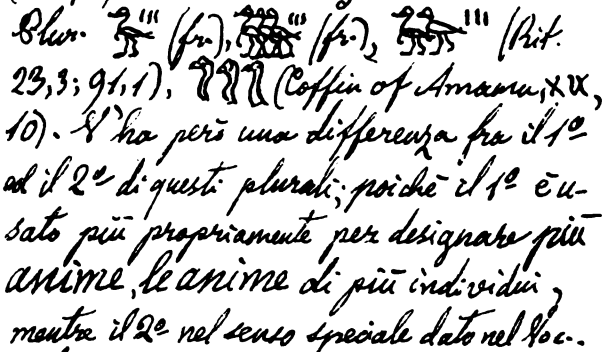 Plur. 𓅡𓏥 (fr.), 𓅢𓏥 (fr.), 𓅡𓅡𓏥 (Rit.
23,3; 91,1), (Coffin of Amamu, XIX,
10). V'ha però una differenza fra il 1º
ed il 2º di questi plurali; poichè il 1º è u-
sato più propriamente per designare più
anime, le anime di più individui,
mentre il 2º nel senso speciale dato nel Voc.